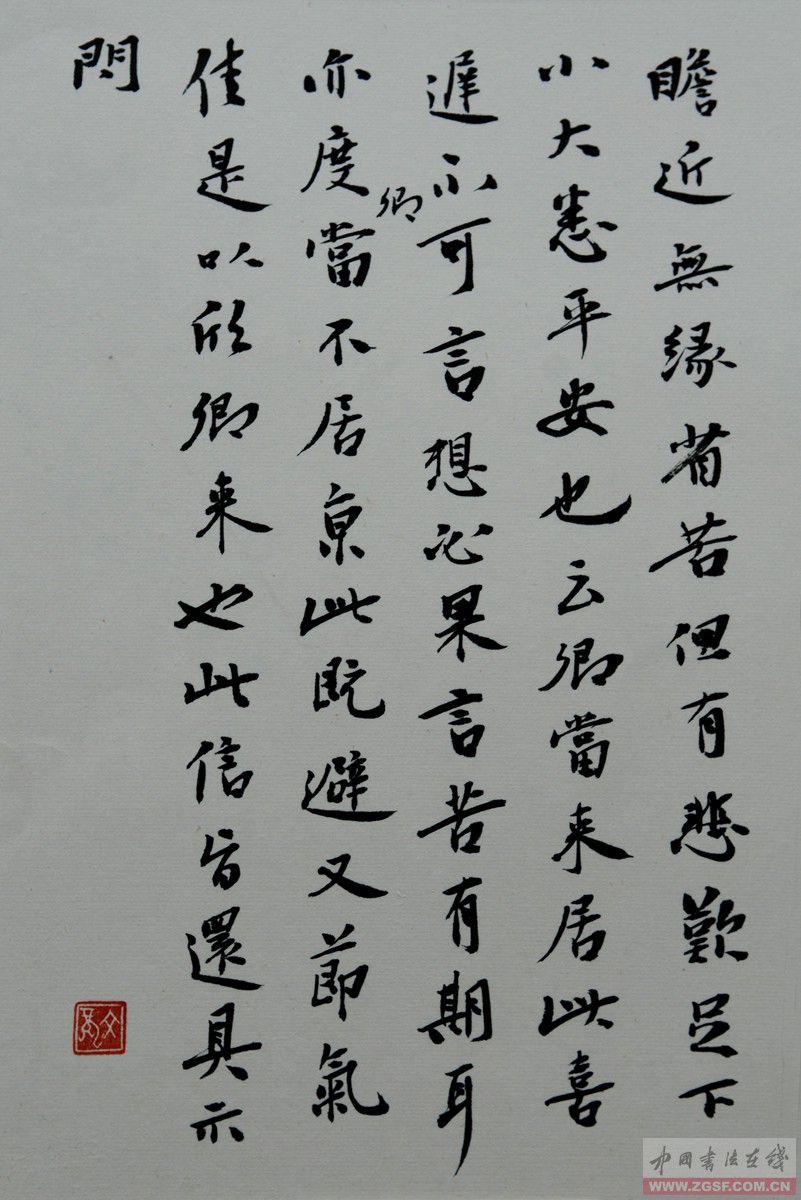 瞻近無緣省苦但有悲歎足下
小大悉平安也云卿當来居此喜
遲不可言想必果言苦有期耳
亦度卿當不居京此既避又節氣
佳是以欣卿来也此信旨還具示
問
中国书法在线
WWW.ZGSF.COM.CN